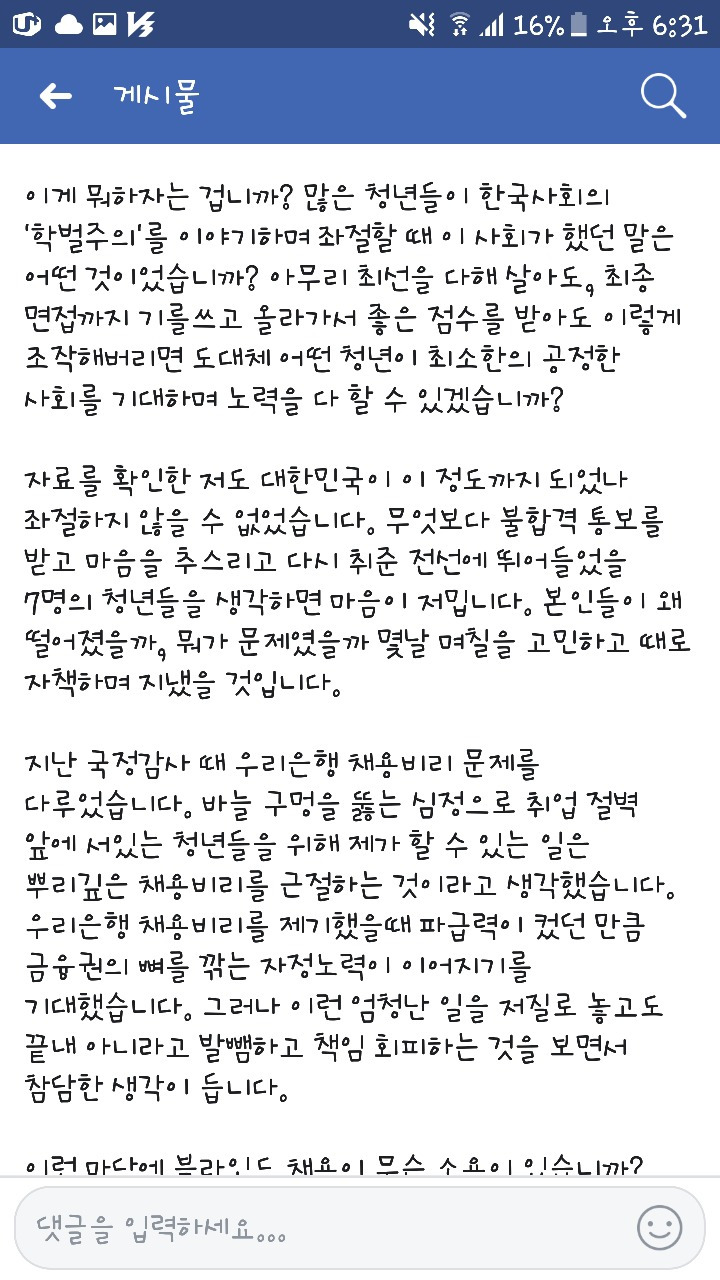 16% 오후 6:31
게시물
이게 뭐하자는 겁니까? 많은 청년들이 한국사회의
'학벌주의'를 이야기하며 좌절할 때 이 사회가 했던 말은
어떤 것이었습니까? 아무리 최선을 다해 살아도, 최종
면접까지 기를쓰고 올라가서 좋은 점수를 받아도 이렇게
조작해버리면 도대체 어떤 청년이 최소한의 공정한
사회를 기대하며 노력을 다 할 수 있겠습니까?
자료를 확인한 저도 대한민국이 이 정도까지 되었나
좌절하지 않을 수 없었습니다. 무엇보다 불합격 통보를
받고 마음을 추스리고 다시 취준 전선에 뛰어들었을
7명의 청년들을 생각하면 마음이 저밉니다. 본인들이 왜
떨어졌을까, 뭐가 문제였을까 몇날 며칠을 고민하고 때로
자책하며 지냈을 것입니다.
지난 국정감사 때 우리은행 채용비리 문제를
다루었습니다. 바늘 구멍을 뚫는 심정으로 취업 절벽
앞에 서있는 청년들을 위해 제가 할 수 있는 일은
뿌리깊은 채용비리를 근절하는 것이라고 생각했습니다.
우리은행 채용비리를 제기했을때 파급력이 컸던 만큼
금융권의 뼈를 깎는 자정노력이 이어지기를
기대했습니다. 그러나 이런 엄청난 일을 저질로 놓고도
끝내 아니라고 발뺌하고 책임 회피하는 것을 보면서
참담한 생각이 듭니다.
이런 마당에 블라인드 채용이 무슨 소용이 있습니까?
댓글을 입력하세요...